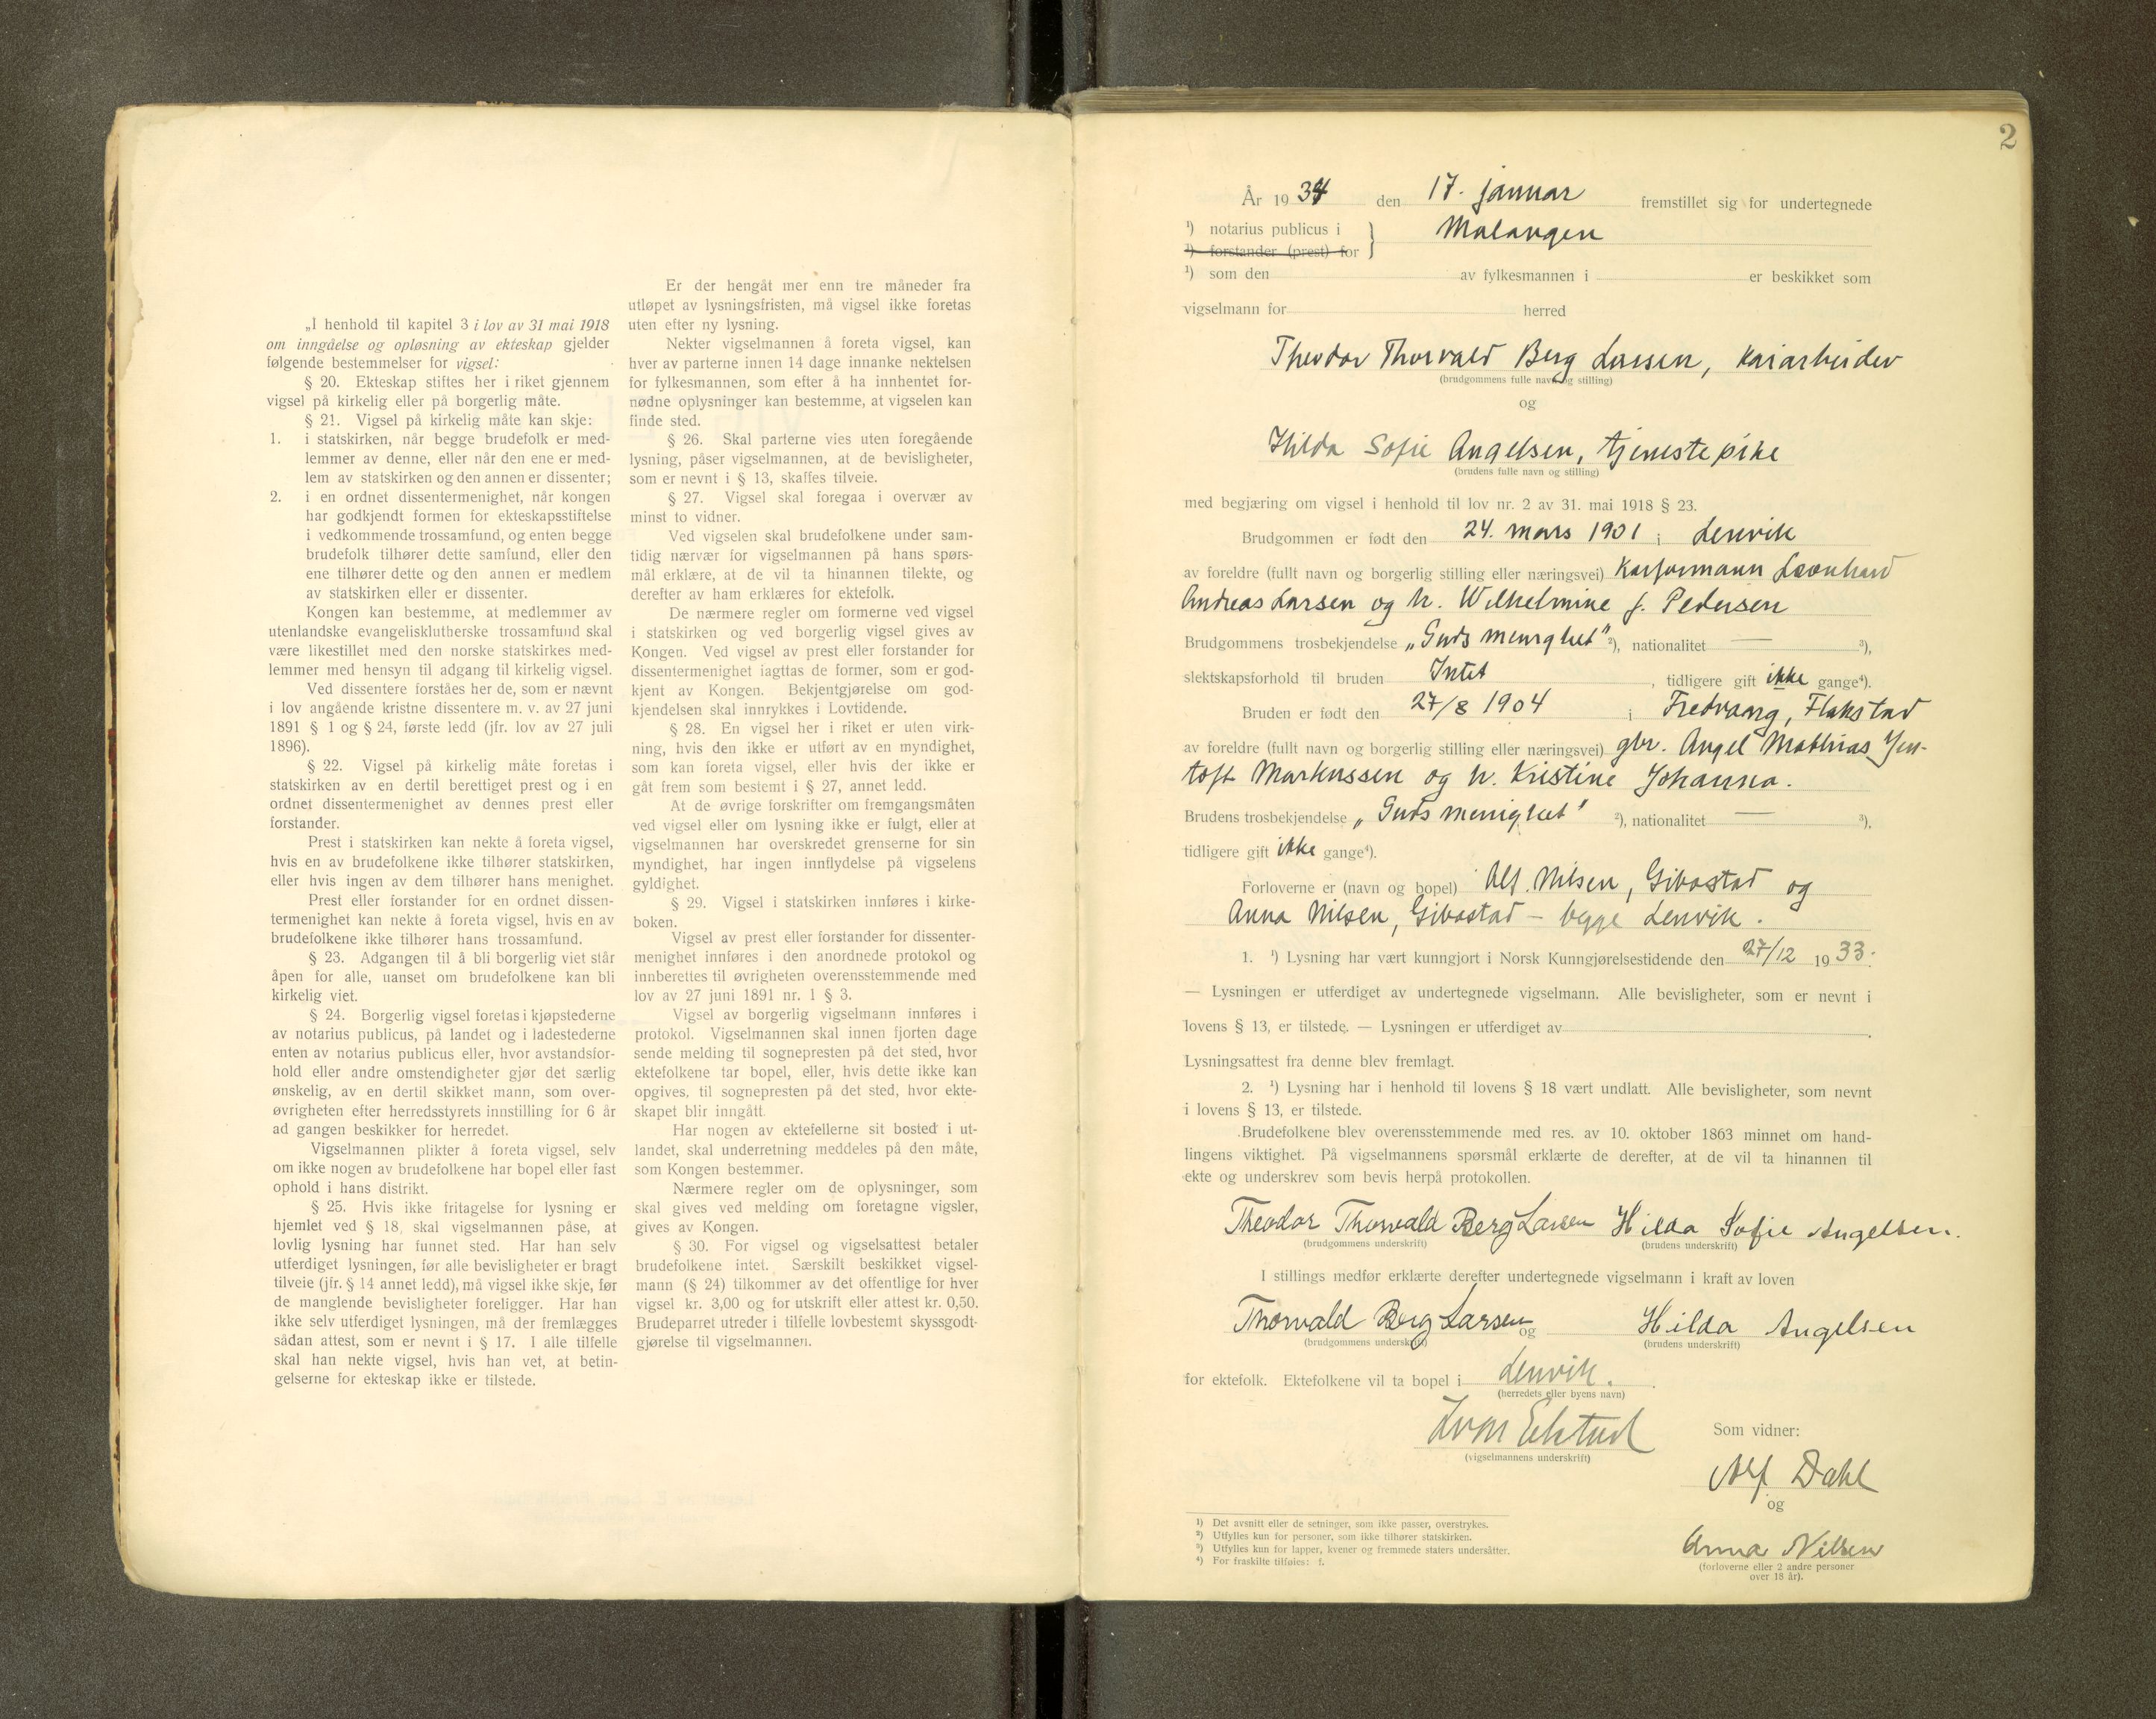 „I henhold til kapitel 3 i lov av 31 mai 1918
om inngåelse og opløsning av ekteskap gjelder
følgende bestemmelser for vigsel:
§ 20. Ekteskap stiftes her i riket gjennem
vigsel på kirkelig eller på borgerlig måte.
§ 21. Vigsel på kirkelig måte kan skje:
1. i statskirken, når begge brudefolk er med-
lemmer av denne, eller når den ene er med-
lem av statskirken og den annen er dissenter;
2. i en ordnet dissentermenighet, når kongen
har godkjendt formen for ekteskapsstiftelse
i vedkommende trossamfund, og enten begge
brudefolk tilhører dette samfund, eller den
ene tilhører dette og den annen er medlem
av statskirken eller er dissenter.
Kongen kan bestemme, at medlemmer av
utenlandske evangelisklutherske trossamfund skal
være likestillet med den norske statskirkes med-
lemmer med hensyn til adgang til kirkelig vigsel.
Ved dissentere forståes her de, som er nævnt
i lov angående kristne dissentere m. v. av 27 juni
1891 § 1 og § 24, første ledd (jfr. lov av 27 juli
1896).
§ 22. Vigsel på kirkelig måte foretas i
statskirken av en dertil berettiget prest og i en
ordnet dissentermenighet av dennes prest eller
forstander.
Prest i statskirken kan nekte å foreta vigsel,
hvis en av brudefolkene ikke tilhører statskirken,
eller hvis ingen av dem tilhører hans menighet.
Prest eller forstander for en ordnet dissen-
termenighet kan nekte å foreta vigsel, hvis en av
brudefolkene ikke tilhører hans trossamfund.
§ 23. Adgangen til å bli borgerlig viet står
åpen for alle, uanset om brudefolkene kan bli
kirkelig viet.
§ 24. Borgerlig vigsel foretas i kjøpstederne
av notarius publicus, på landet og i ladestederne
enten av notarius publicus eller, hvor avstandsfor-
hold eller andre omstendigheter gjør det særlig
ønskelig, av en dertil skikket mann, som over-
øvrigheten efter herredsstyrets innstilling for 6 år
ad gangen beskikker for herredet.
Vigselmannen plikter å foreta vigsel, selv
om ikke nogen av brudefolkene har bopel eller fast
ophold i hans distrikt.
§ 25. Hvis ikke fritagelse for lysning er
hjemlet ved § 18, skal vigselmannen påse, at
lovlig lysning har funnet sted. Har han selv
utferdiget lysningen, før alle bevisligheter er bragt
tilveie (jfr. § 14 annet ledd), må vigsel ikke skje, før
de manglende bevisligheter foreligger. Har han
ikke selv utferdiget lysningen, må der fremlægges
sådan attest, som er nevnt i § 17. I alle tilfelle
skal han nekte vigsel, hvis han vet, at betin-
gelserne for ekteskap ikke er tilstede.
Er der hengåt mer enn tre måneder fra
utløpet av lysningsfristen, må vigsel ikke foretas
uten efter ny lysning.
Nekter vigselmannen å foreta vigsel, kan
hver av parterne innen 14 dage innanke nektelsen
for fylkesmannen, som efter å ha innhentet for-
nødne oplysninger kan bestemme, at vigselen kan
finde sted.
§ 26. Skal parterne vies uten foregående
lysning, påser vigselmannen, at de bevisligheter,
som er nevnt i § 13, skaffes tilveie.
§ 27. Vigsel skal foregaa i overvær av
minst to vidner.
Ved vigselen skal brudefolkene under sam-
tidig nærvær for vigselmannen på hans spørs-
mål erklære, at de vil ta hinannen tilekte, og
derefter av ham erklæres for ektefolk.
De nærmere regler om formerne ved vigsel
i statskirken og ved borgerlig vigsel gives av
Kongen. Ved vigsel av prest eller forstander for
dissentermenighet iagttas de former, som er god-
kjent av Kongen. Bekjentgjørelse om god-
kjendelsen skal innrykkes i Lovtidende.
§ 28. En vigsel her i riket er uten virk-
ning, hvis den ikke er utført av en myndighet,
som kan foreta vigsel, eller hvis der ikke er
gåt frem som bestemt i § 27, annet ledd.
At de øvrige forskrifter om fremgangsmåten
ved vigsel eller om lysning ikke er fulgt, eller at
vigselmannen har overskredet grenserne for sin
myndighet, har ingen innflydelse på vigselens
gyldighet.
§ 29. Vigsel i statskirken innføres i kirke-
boken.
Vigsel av prest eller forstander for dissenter-
menighet innføres i den anordnede protokol og
innberettes til øvrigheten overensstemmende med
lov av 27 juni 1891 nr. 1 § 3.
Vigsel av borgerlig vigselmann innføres i
protokol. Vigselmannen skal innen fjorten dage
sende melding til sognepresten på det sted, hvor
ektefolkene tar bopel, eller, hvis dette ikke kan
opgives, til sognepresten på det sted, hvor ekte-
skapet blir inngått.
Har nogen av ektefellerne sit bosted i ut-
landet, skal underretning meddeles på den måte,
som Kongen bestemmer.
Nærmere regler om de oplysninger, som
skal gives ved melding om foretagne vigsler,
gives av Kongen.
§ 30. For vigsel og vigselsattest betaler
brudefolkene intet. Særskilt beskikket vigsel-
mann (§ 24) tilkommer av det offentlige for hver
vigsel kr. 3,00 og for utskrift eller attest kr. 0,50.
Brudeparret utreder i tilfelle lovbestemt skyssgodt-
gjørelse til vigselmannen.
2
År 1934 den 17. januar fremstillet sig for undertegnede
¹) notarius publicus i } Malangen
¹) forstander (prest) for
¹) som den av fylkesmannen i er beskikket som
vigselmann for herred
Theodor Thorvald Berg Larsen, kaiarbeider
(brudgommens fulle navn og stilling)
og
Hilda Sofie Angelsen, tjenestepike
(brudens fulle navn og stilling)
med begjæring om vigsel i henhold til lov nr. 2 av 31. mai 1918 § 23.
Brudgommen er født den 24. mars 1901 i Lenvik
av foreldre (fullt navn og borgerlig stilling eller næringsvei) Kaiformann Leonhard
Andreas Larsen og h. Wilhelmine f. Pedersen
Brudgommens trosbekjendelse „Guds menighet" ²), nationalitet — ³),
slektskapsforhold til bruden Intet, tidligere gift ikke gange⁴).
Bruden er født den 27/8 1904 i Fredvang, Flakstad
av foreldre (fullt navn og borgerlig stilling eller næringsvei) gbr. Angel Mathias Jen-
toft Markussen og h. Kristine Johanna.
Brudens trosbekjendelse „Guds menighet" ²), nationalitet — ³),
tidligere gift ikke gange⁴).
Forloverne er (navn og bopel) Alf. Nilsen, Gibostad og
Anna Nilsen, Gibostad – begge Lenvik.
1. ¹) Lysning har vært kunngjort i Norsk Kunngjørelsestidende den 27/12 1933.
— Lysningen er utferdiget av undertegnede vigselmann. Alle bevisligheter, som er nevnt i
lovens § 13, er tilstede. — Lysningen er utferdiget av .
Lysningsattest fra denne blev fremlagt.
2. ¹) Lysning har i henhold til lovens § 18 vært undlatt. Alle bevisligheter, som nevnt
i lovens § 13, er tilstede.
Brudefolkene blev overensstemmende med res. av 10. oktober 1863 minnet om hand-
lingens viktighet. På vigselmannens spørsmål erklærte de derefter, at de vil ta hinannen til
ekte og underskrev som bevis herpå protokollen.
Theodor Thorvald Berg Larsen Hilda Sofie Angelsen.
(brudgommens underskrift) (brudens underskrift)
I stillings medfør erklærte derefter undertegnede vigselmann i kraft av loven
Thorvald Berg Larsen og Hilda Angelsen
(brudgommens underskrift) (brudens underskrift)
for ektefolk. Ektefolkene vil ta bopel i Lenvik.
(herredets eller byens navn)
(vigselmannens underskrift)
Som vidner:
Alf Dahl
og
Anna Nilsen
(forloverne eller 2 andre personer
over 18 år).
¹) Det avsnitt eller de setninger, som ikke passer, overstrykes.
²) Utfylles kun for personer, som ikke tilhører statskirken.
³) Utfylles kun for lapper, kvener og fremmede staters undersåtter.
⁴) For fraskilte tilføies: f.